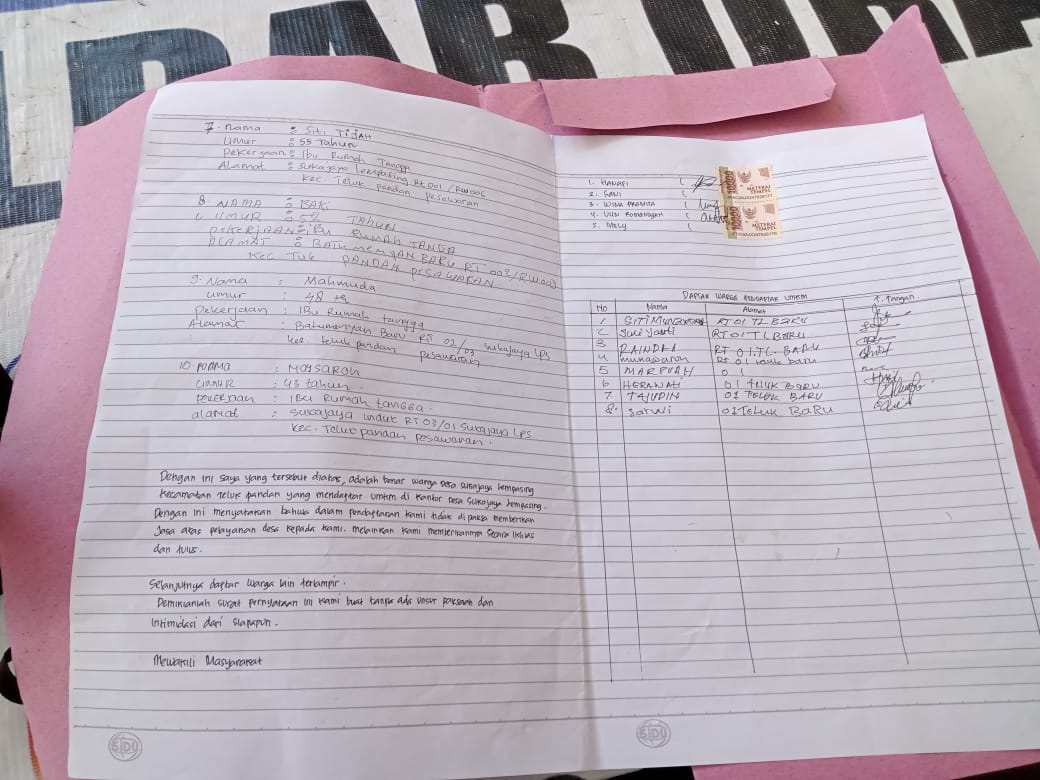 7. Nama : Siti TIJAH
Umur : 55 Tahun
Pekerjaan : Ibu Rumah Tangga
Alamat : Sukajaya Lempasing Rt 001 / RW005
Kec. Teluk pandan pesawaran
8 NAMA : BAKI
UMUR : 52 TAHUN
PEKERJAAN : IBU RUMAH TANGA
ALAMAT : BATU MENYAN BARU RT 003/RW003
Kec Tluk PANDAN PESAWARAN
9. Nama : Mahmuda
umur : 48 th
Pekerjaan : IBu Rumah tangga
Alamat : Batumenyan Baru RT 02/03 Sukajaya Lps
kec. teluk pandan pesawaran
10. NAMA : MASAROH
UMUR : 43 tahun.
Pekerjaan : IBu Rumah tangga.
alamat : Sukajaya induk RT 03/01 Sukajaya Lps.
Kec. Teluk pandan pesawaran.
Dengan ini saya yang tersebut diatas, adalah benar warga Desa Sukajaya Lempasing
Kecamatan Teluk pandan yang mendaftar umkm di Kantor Desa Sukajaya Lempasing.
Dengan ini menyatakan bahwa dalam pendaftaran kami tidak di paksa memberikan
Jasa atas pelayanan desa kepada kami. melainkan kami memberikannya secara ikhlas
dan tulus.
Selanjutnya daftar warga lain terlampir.
Demikianlah surat pernyataan ini kami buat tanpa ada unsur paksaan dan
Intimidasi dari siapapun.
Mewakili Masyarakat
SIDU
1. HANAFI (
2. SAWI (
3. WINA PRASITA (
4. (
5. MELY (
10000
METERAI
TEMPEL
10000
METERAI
TEMPEL
DAFTAR WARGA PENDAFTAR UMKM
No Nama Alamat T. Tangan
1 SITI RT 01 TL BARU
2 RT 01 TL BARU
3 RAINDRA RT 01.TL. BARU
4 munawaroh Rt 01 teluk baru
5 MARPUAH 01
6 HERAWATI 01 TELUK BARU
7. TAJUDIN 01 TELUK BARU
8. Sarwi 01 Teluk BaRU
SIDU